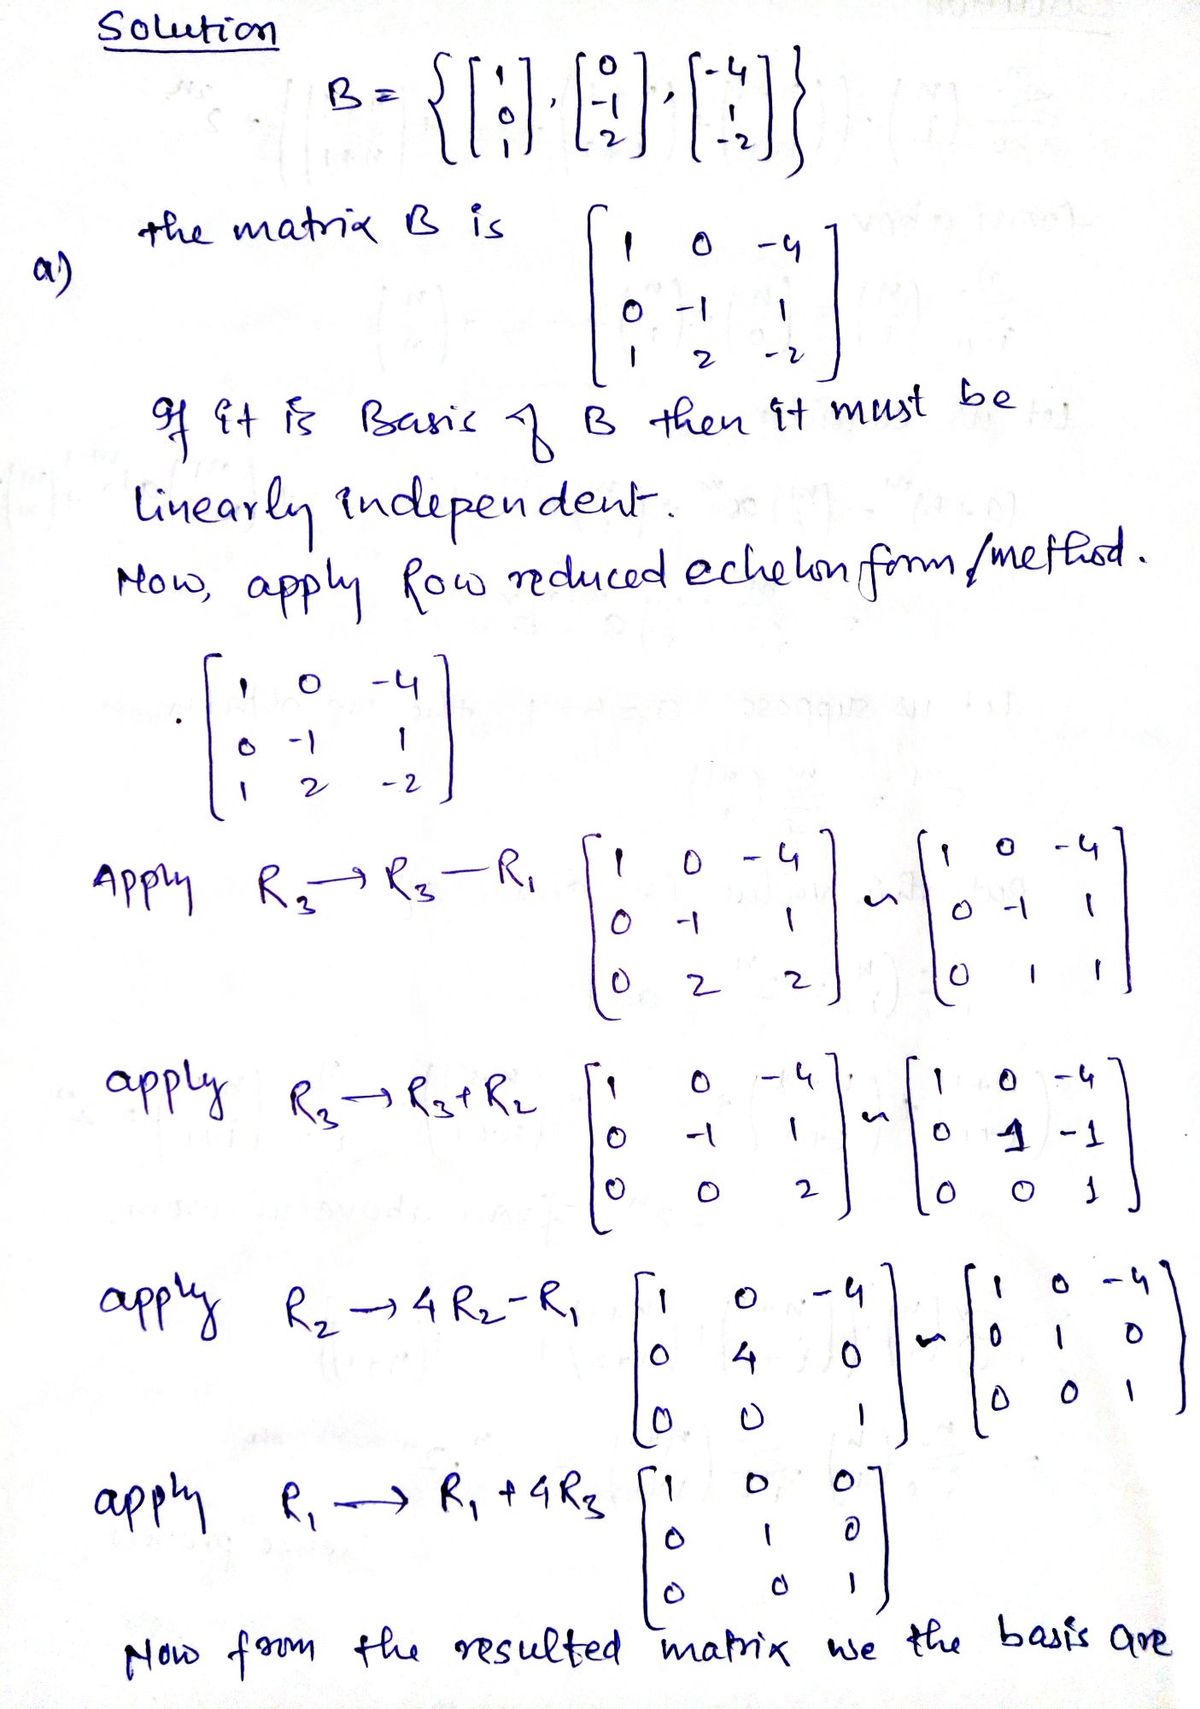 Solution
B = { [1 0 1], [0 -1 2], [-4 1 -2] }
the matrix B is
a)
[ 1 0 -4
0 -1 1
1 2 -2 ]
If it is Basis of B then it must be
linearly independent.
Now, apply Row reduced echelon form/method.
[ 1 0 -4
0 -1 1
1 2 -2 ]
Apply R3 → R3 – R1 [ 1 0 -4 ] ~ [ 1 0 -4 ]
[ 0 -1 1 ] [ 0 -1 1 ]
[ 0 2 2 ] [ 0 1 1 ]
apply R3 → R3 + R2 [ 1 0 -4 ] ~ [ 1 0 -4 ]
[ 0 -1 1 ] [ 0 1 -1 ]
[ 0 0 2 ] [ 0 0 1 ]
apply R2 → 4R2 - R1 [ 1 0 -4 ] ~ [ 1 0 -4 ]
[ 0 4 0 ] [ 0 1 0 ]
[ 0 0 1 ] [ 0 0 1 ]
apply R1 → R1 + 4R3 [ 1 0 0 ]
[ 0 1 0 ]
[ 0 0 1 ]
Now from the resulted matrix we the basis are